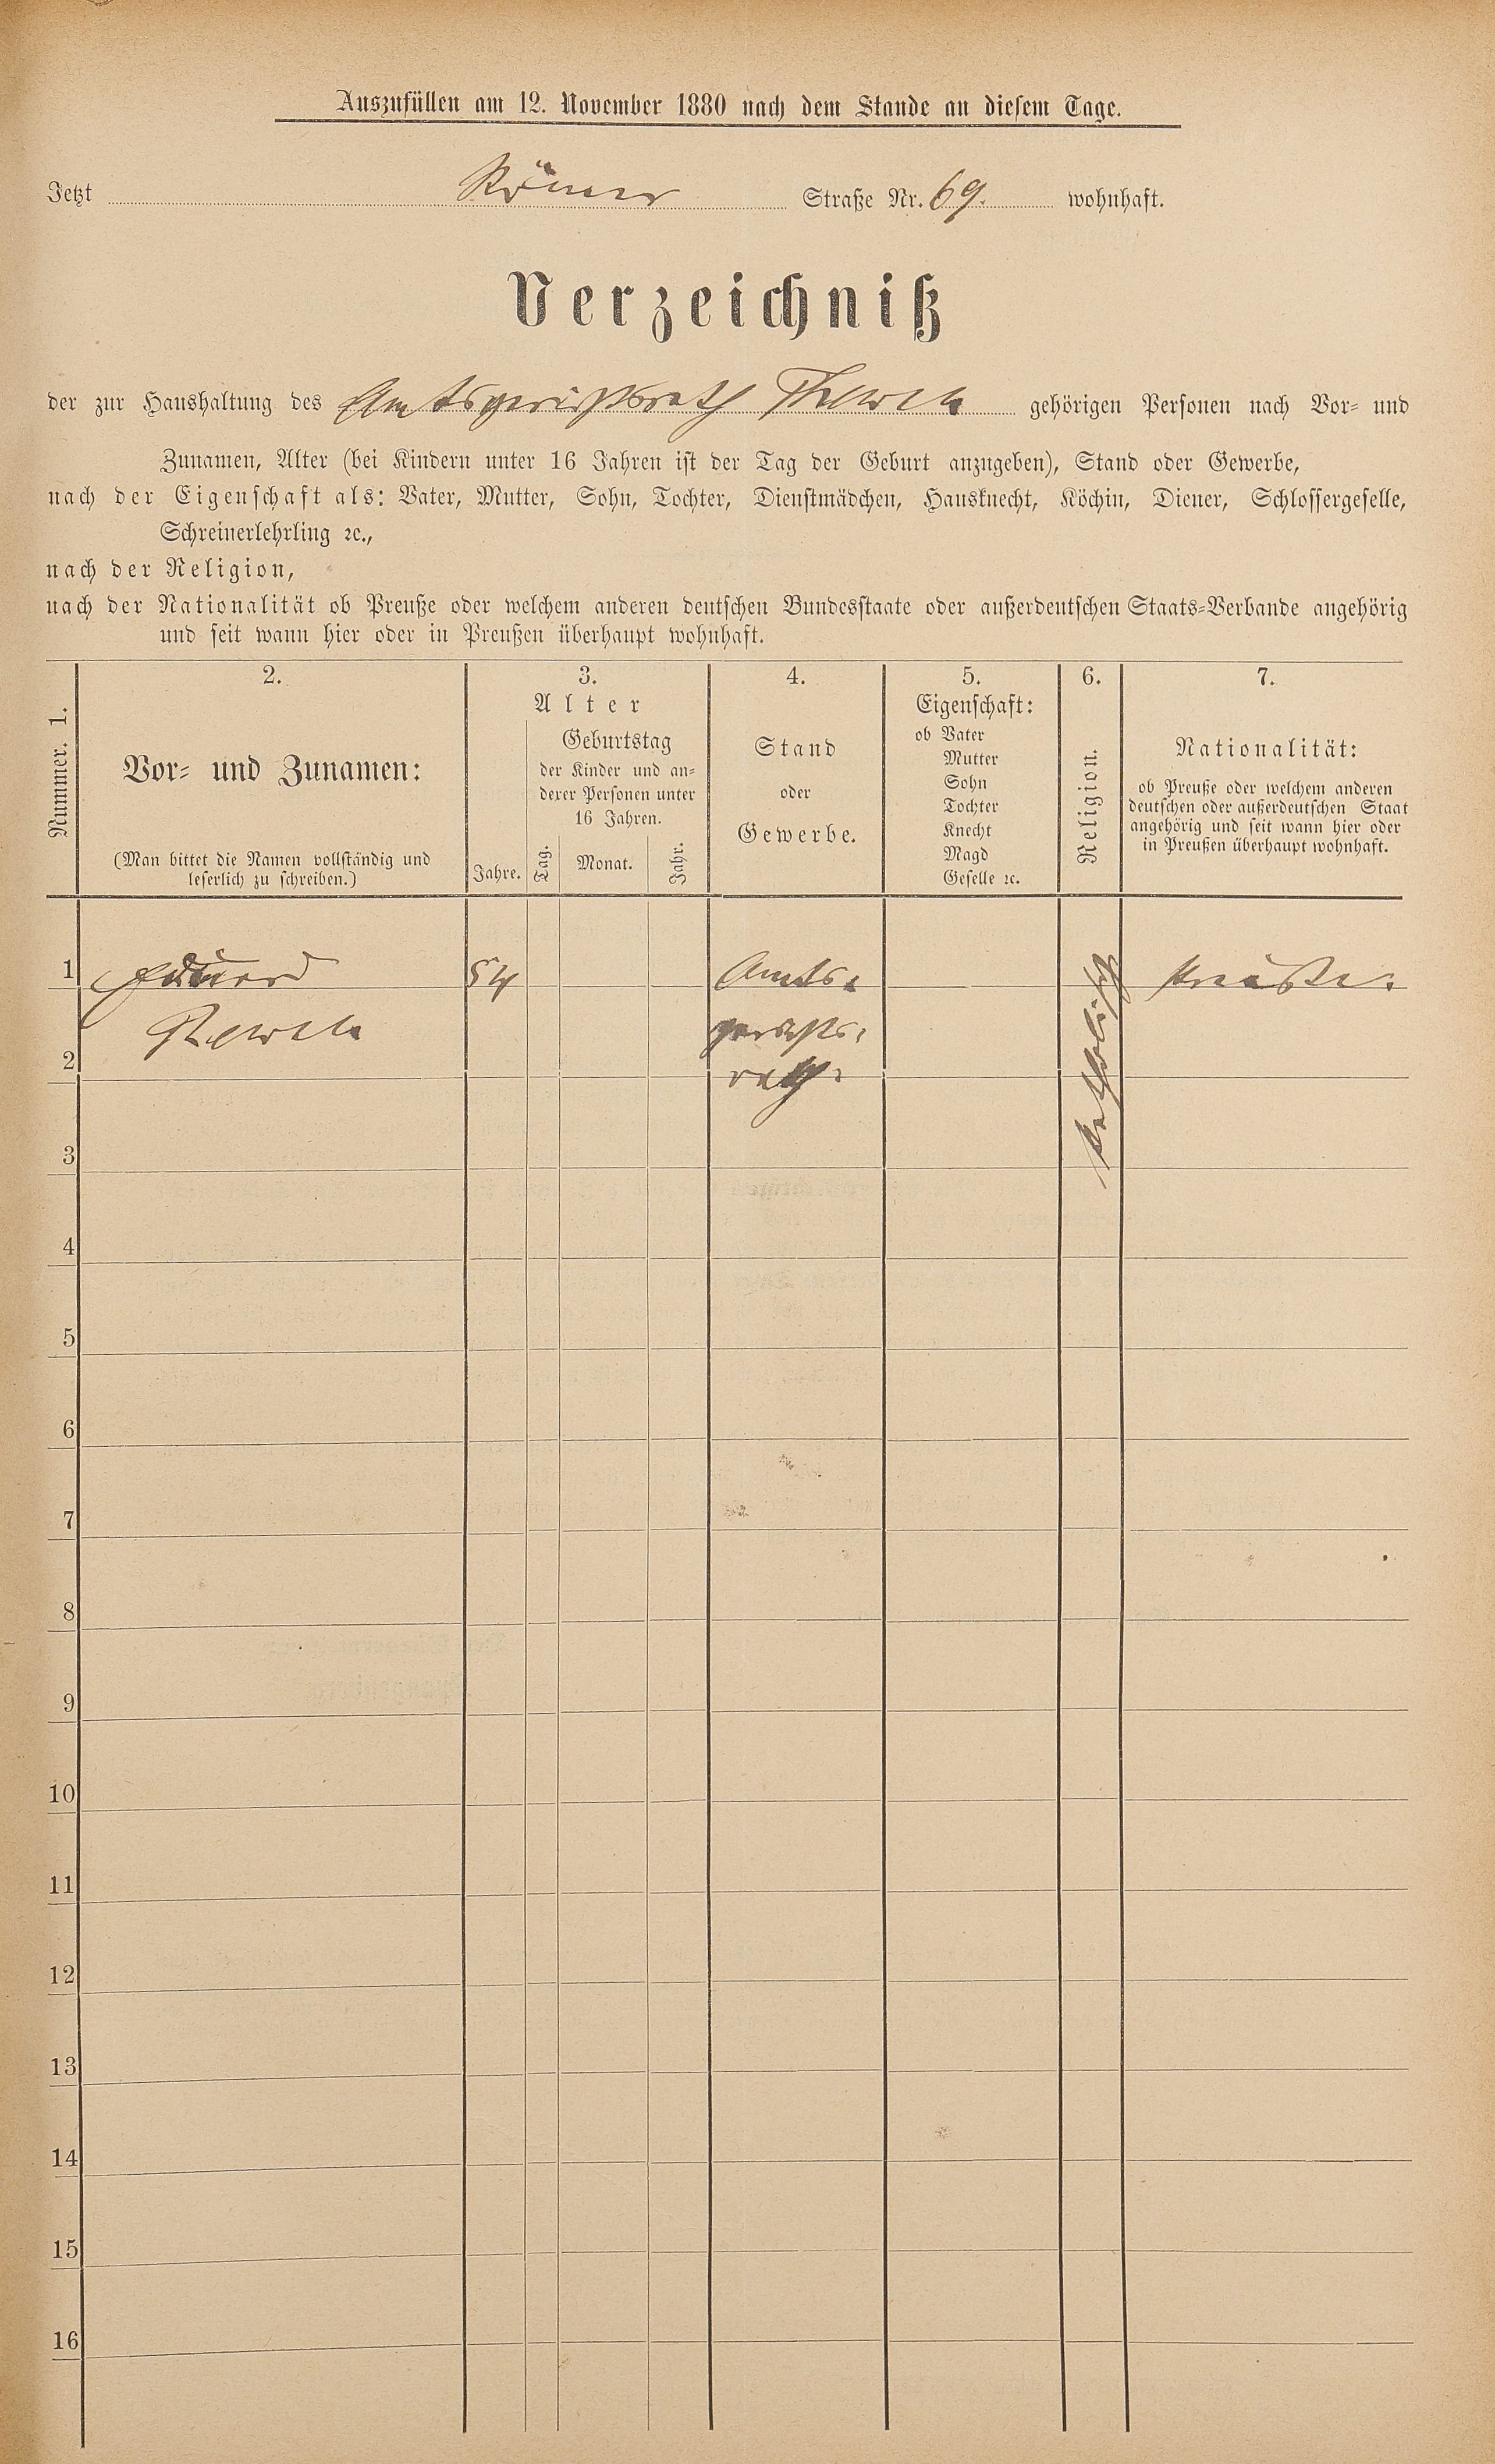 Auszufüllen am 12. November 1880 nach dem Stande an diesem Tage.
Jetzt Römer Straße Nr. 69. wohnhaft.
Verzeichniß
der zur Haushaltung des Amtsgerichtsrath gehörigen Personen nach Vor- und
Zunamen, Alter (bei Kindern unter 16 Jahren ist der Tag der Geburt anzugeben), Stand oder Gewerbe,
nach der Eigenschaft als: Vater, Mutter, Sohn, Tochter, Dienstmädchen, Hausknecht, Köchin, Diener, Schlossergeselle,
Schreinerlehrling ꝛc.,
nach der Religion,
nach der Nationalität ob Preuße oder welchem anderen deutschen Bundesstaate oder außerdeutschen Staats-Verbande angehörig
und seit wann hier oder in Preußen überhaupt wohnhaft.
Nummer. 1.
2.
Vor- und Zunamen:
(Man bittet die Namen vollständig und
leserlich zu schreiben.)
3.
Alter
Jahre.
Geburtstag
der Kinder und an-
derer Personen unter
16 Jahren.
Tag.
Monat.
Jahr.
4.
Stand
oder
Gewerbe.
5.
Eigenschaft:
ob Vater
Mutter
Sohn
Tochter
Knecht
Magd
Geselle ꝛc.
6.
Religion.
7.
Nationalität:
ob Preuße oder welchem anderen
deutschen oder außerdeutschen Staat
angehörig und seit wann hier oder
in Preußen überhaupt wohnhaft.
1 Eduard 54 Amts- katholisch Preuße.
gerichts-
2 rath.
3
4
5
6
7
8
9
10
11
12
13
14
15
16